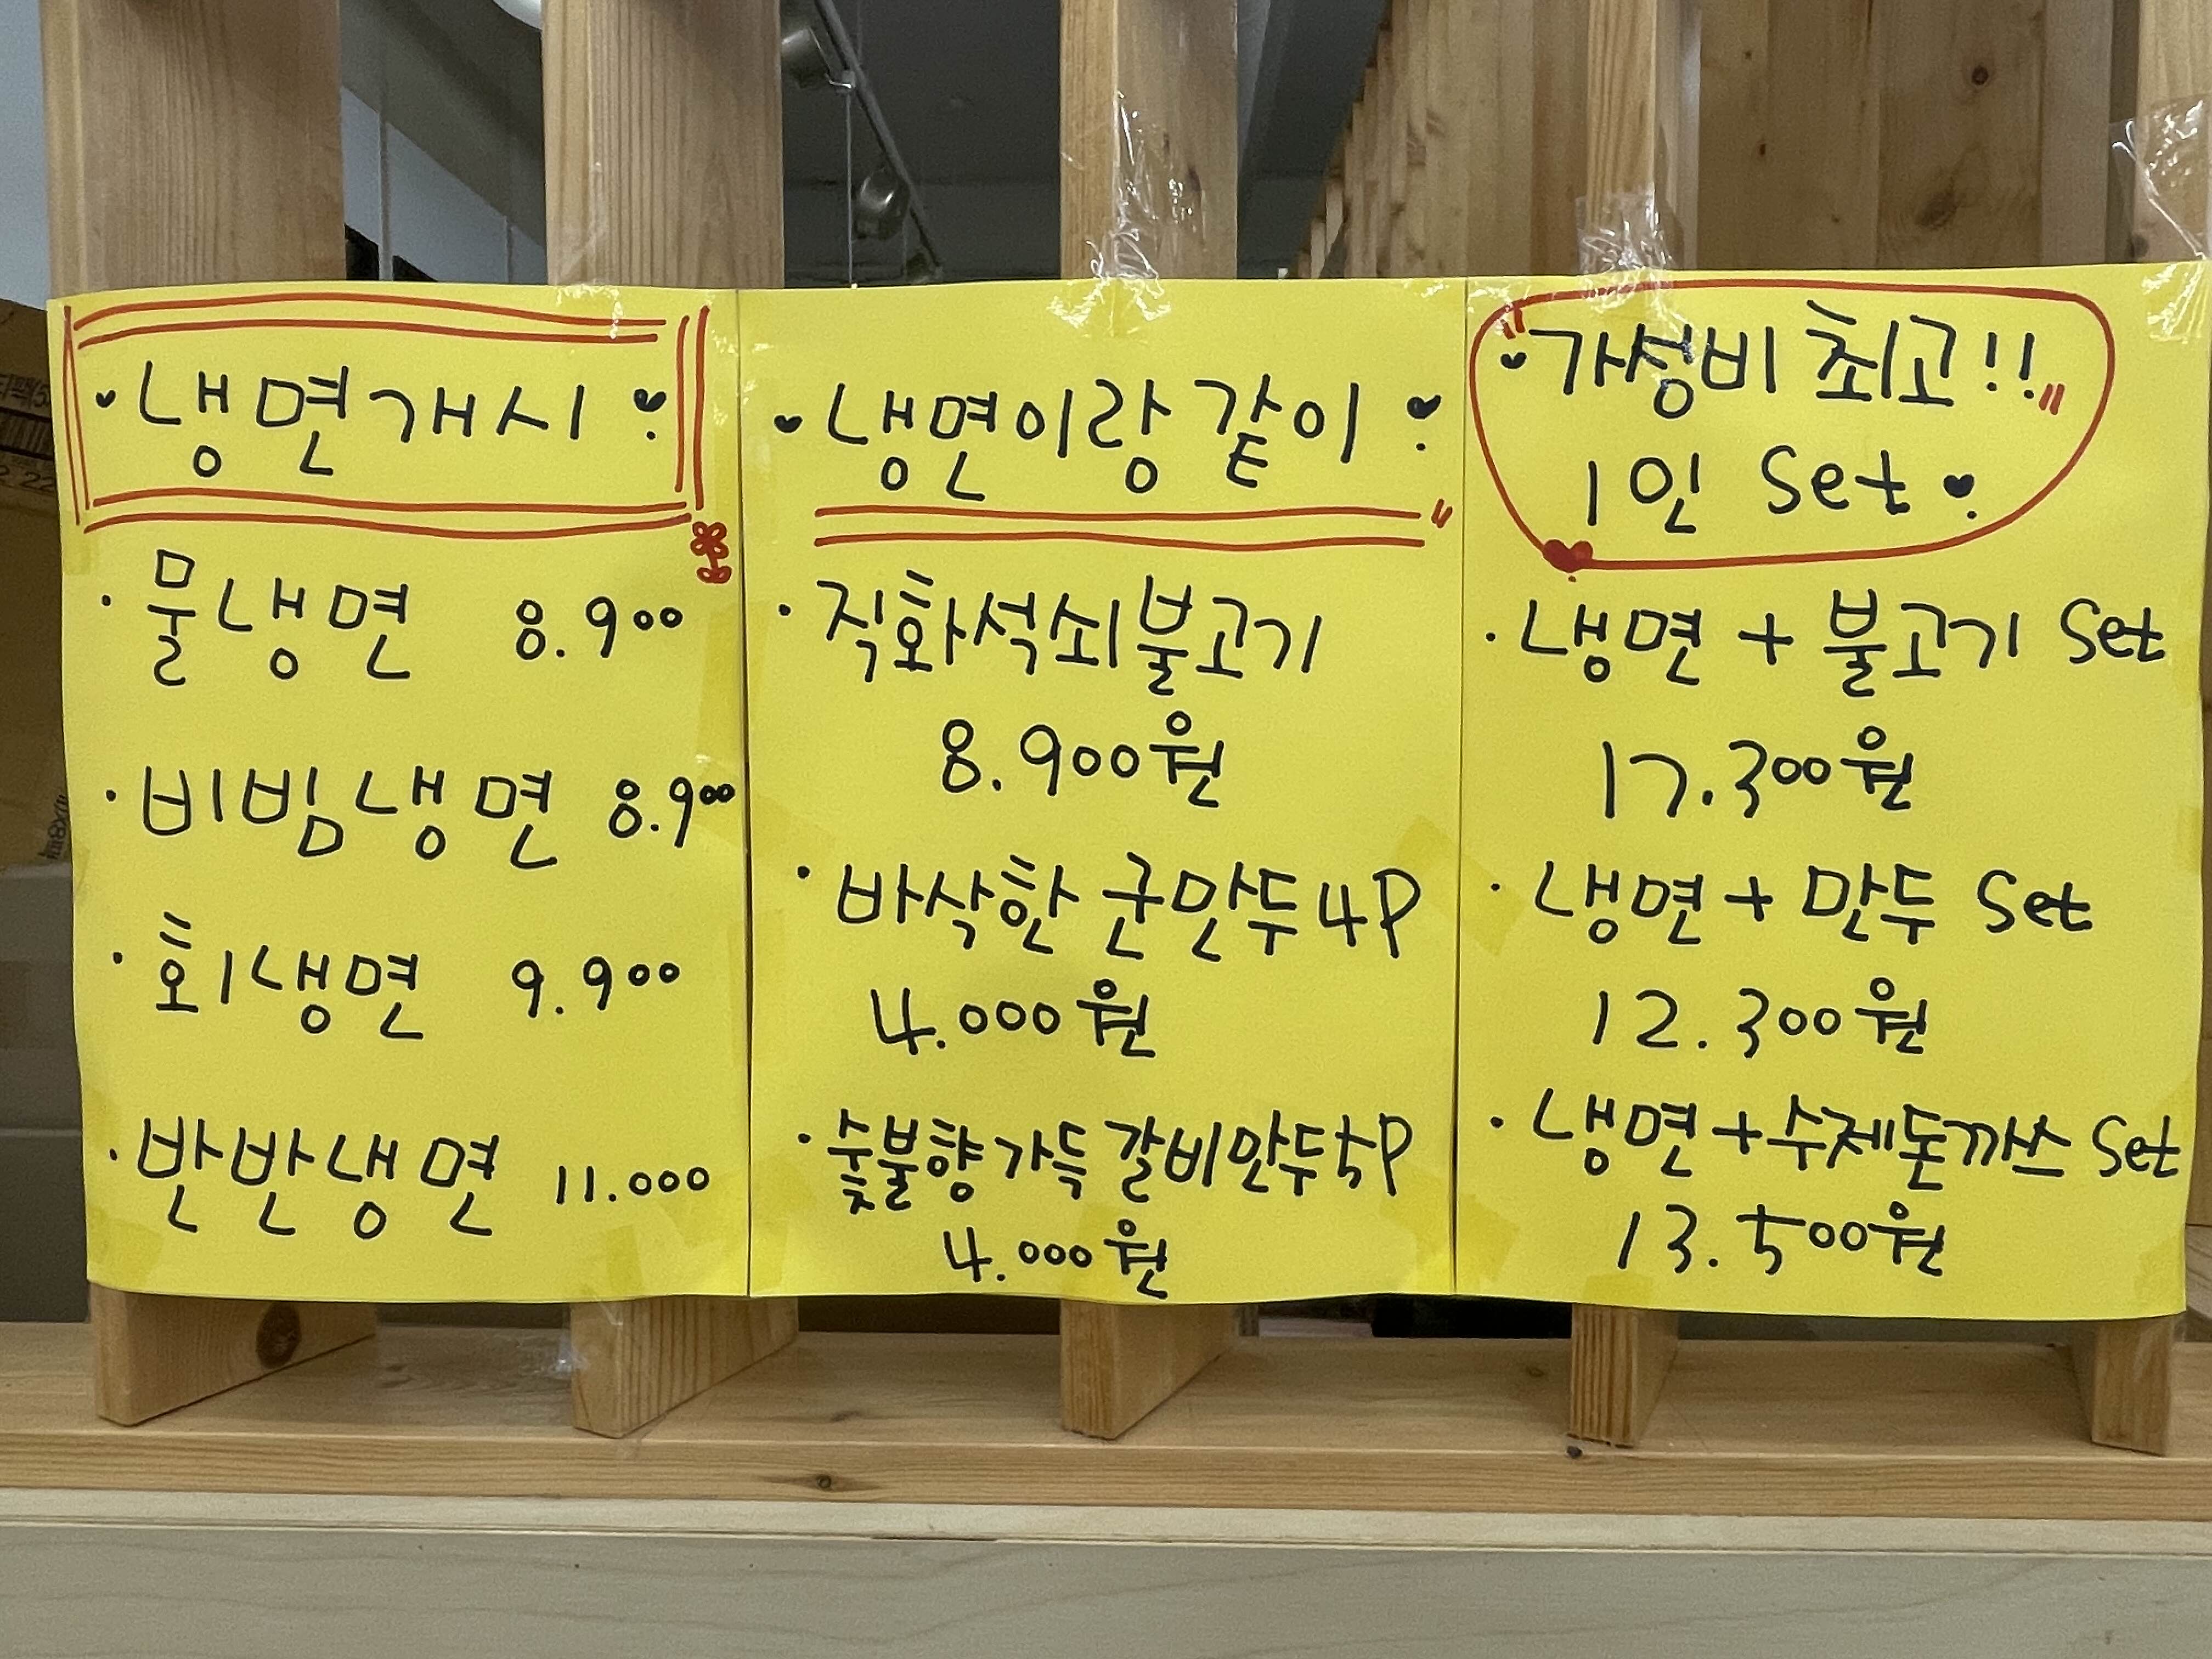 냉면개시
물냉면 8.900
비빔냉면 8.900
회냉면 9.900
반반냉면 11.000
냉면이랑 같이
직화석쇠불고기
8.900원
바삭한 군만두 4P
4.000원
숯불향 가득 갈비만두 5P
4.000원
"가성비 최고!!"
1인 Set
냉면 + 불고기 Set
17.300원
냉면 + 만두 Set
12.300원
냉면 + 수제돈까스 Set
13.500원